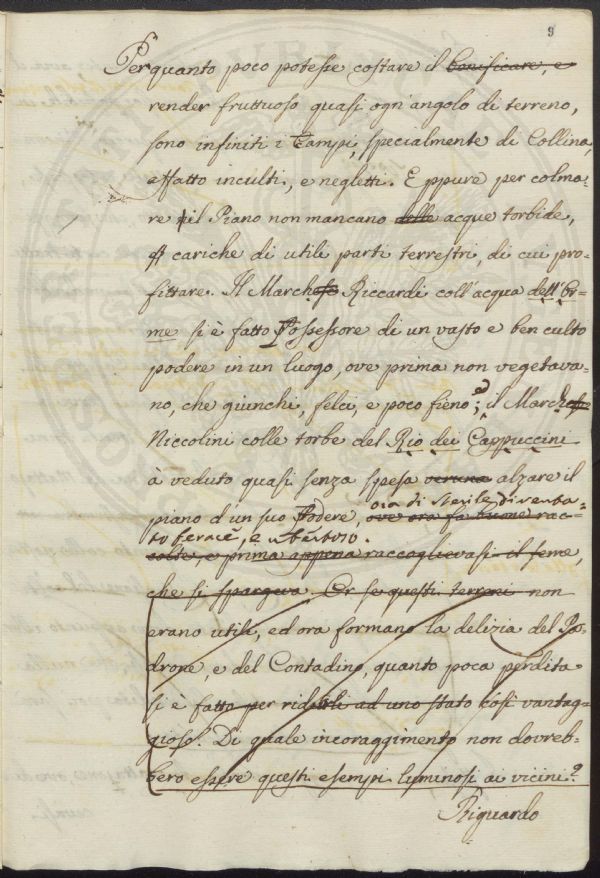 9
Perquanto poco potesse costare il bonificare, e
render fruttuoso quasi ogn'angolo di terreno,
sono infiniti i Campi, specialmente di Collina,
affatto inculti, e negletti. E ppure per colma-
re il Piano non mancano delle acque torbide,
cariche di utili parti terrestri, di cui pro-
fittare. Il Marchese Riccardi coll'acqua dell'Or-
me si è fatto Possessore di un vasto e ben culto
podere in un luogo, ove prima non vegetava-
no, che giunchi, felci, e poco fieno; ed il Marchese
Niccolini colle torbe del Rio dei Cappuccini
à veduto quasi senza spesa veruna alzare il
piano d'un suo Podere, ove ora fa buone rac-
ora di sterile diventa-
to ferace, e
colte, e prima appena raccoglievasi il seme,
che si spargeva. Or se questi terreni non
erano utili, ed ora formano la delizia del Pa-
drone, e del Contadino, quanto poca perdita
si è fatto per ridurli ad uno stato così vantag-
gioso. Di quale incoraggimento non dovreb-
bero essere questi esempi luminosi ai vicini?
Riguardo